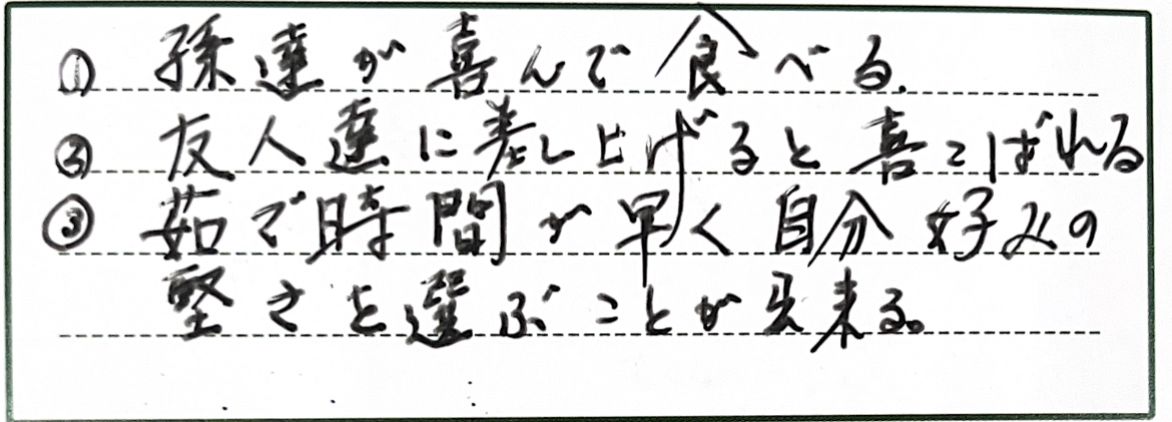 ① 孫達が喜んで食べる.
② 友人達に差し上げると喜こばれる
③ 茹で時間が早く自分好みの
堅さを選ぶことが出来る。